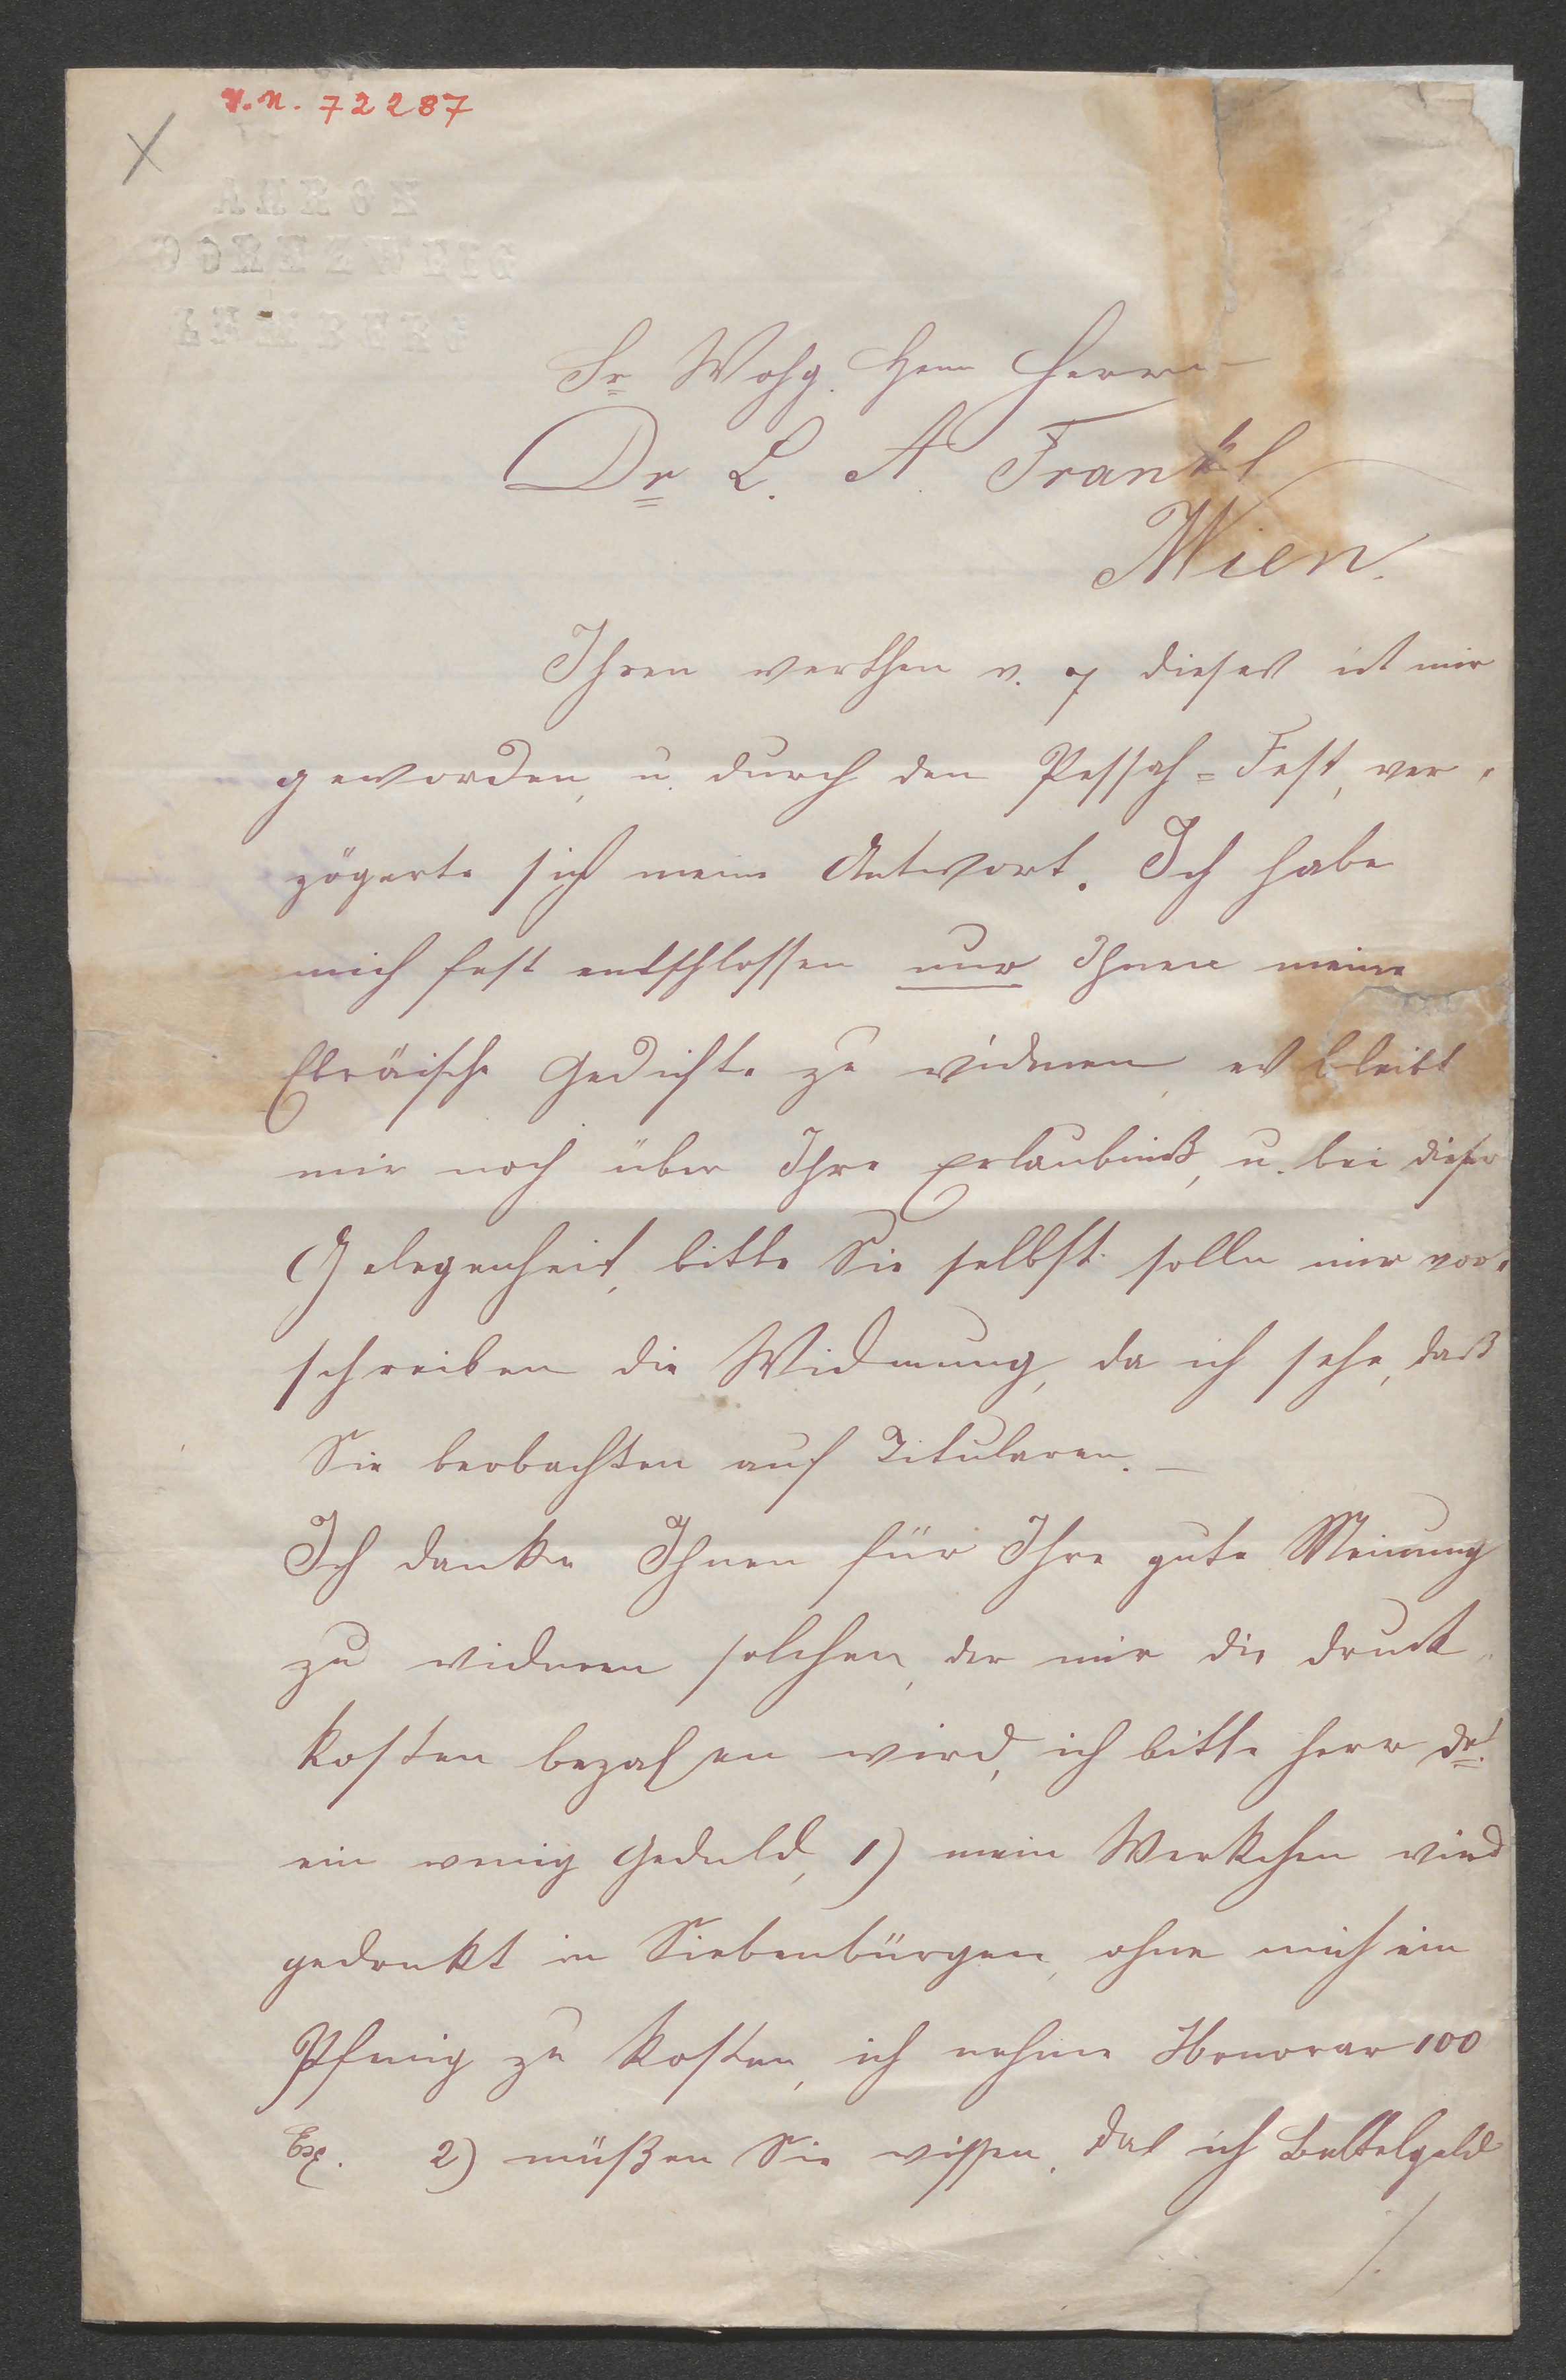 V. N. 72287
Sr Wohg. Herrn
Dr L. A. Frankl
Wien.
Ihren werthen v. 7 dieses ist mir
geworden, u. durch den Pessah=Fest, ver=
zögerte sich meine Antwort. Ich habe
mich fest entschlossen nur Ihnen meine
Ebräische Gedichte zu widmen, es bleibt
mir noch über Ihre Erlaubniß, u. bei dieser
Gelegenheit, bitte Sie selbst solln mir vor=
schreiben die Widmung, da ich sehe, daß
Sie beobachten auf Titularen. —
Ich danke Ihnen für Ihre gute Meinung
zu widmen solchen, der mir die druck
kosten bezahlen wird, ich bitte herr dr.
ein wenig Geduld, 1) mein Werkchen wird
gedrukt in Siebenbürgen, ohne mich ein
Pfenig zu kosten, ich nehme Honorar 100
Ex. 2) müßen Sie wissen, das ich Bettelgeld
/.